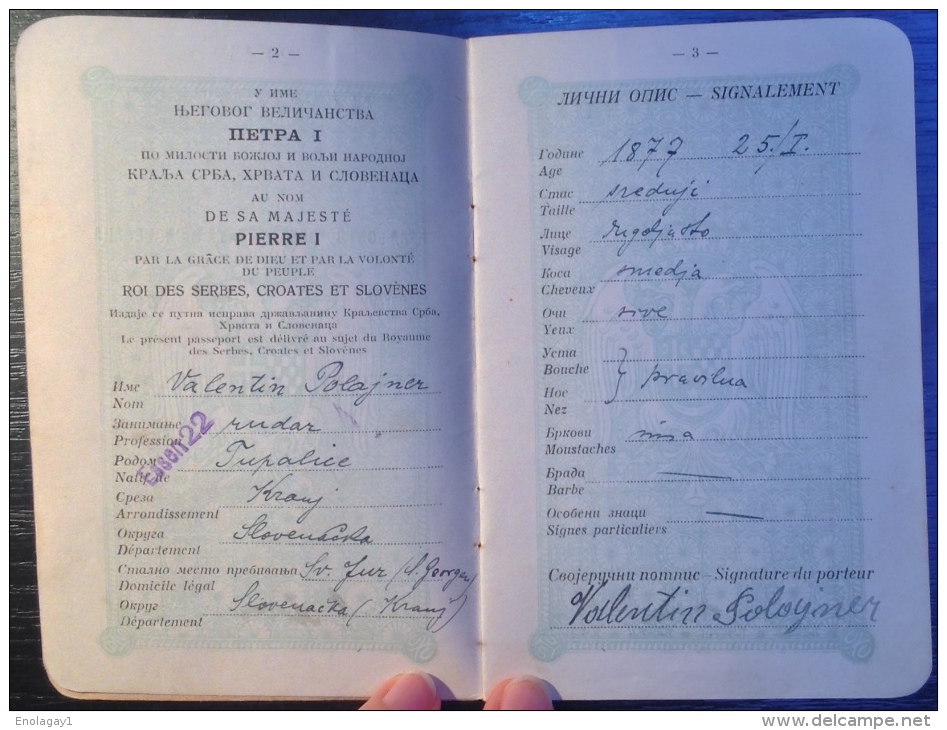 — 2 —
У ИМЕ
ЊЕГОВОГ ВЕЛИЧАНСТВА
ПЕТРА I
ПО МИЛОСТИ БОЖЈОЈ И ВОЉИ НАРОДНОЈ
КРАЉА СРБА, ХРВАТА И СЛОВЕНАЦА
AU NOM
DE SA MAJESTÉ
PIERRE I
PAR LA GRÂCE DE DIEU ET PAR LA VOLONTÉ
DU PEUPLE
ROI DES SERBES, CROATES ET SLOVÈNES
Издаје се путна исправа држављанину Краљевства Срба,
Хрвата и Словенаца
Le présent passeport est délivré au sujet du Royaume
des Serbes, Croates et Slovènes
Име Valentin Polajner
Nom
Занимање rudar
Profession
Essen 22
Родом Tupaliče
Natif de
Среза Kranj
Arrondissement
Округа Slovenačka
Département
Стално место пребивања Sv. Jur (S. Georgen)
Domicile légal
Округ Slovenačka (Kranj)
Département
— 3 —
ЛИЧНИ ОПИС — SIGNALEMENT
Године 1877 25./I.
Age
Стас srednji
Taille
Лице
Visage
Коса smedja
Cheveux
Очи sive
Yeux
Уста
Bouche
pravilna
Нос
Nez
Бркови nima
Moustaches
Брада —
Barbe
Особени знаци —
Signes particuliers
Својеручни потпис — Signature du porteur
Valentin Polojner
Enolagay1
delcampe.net